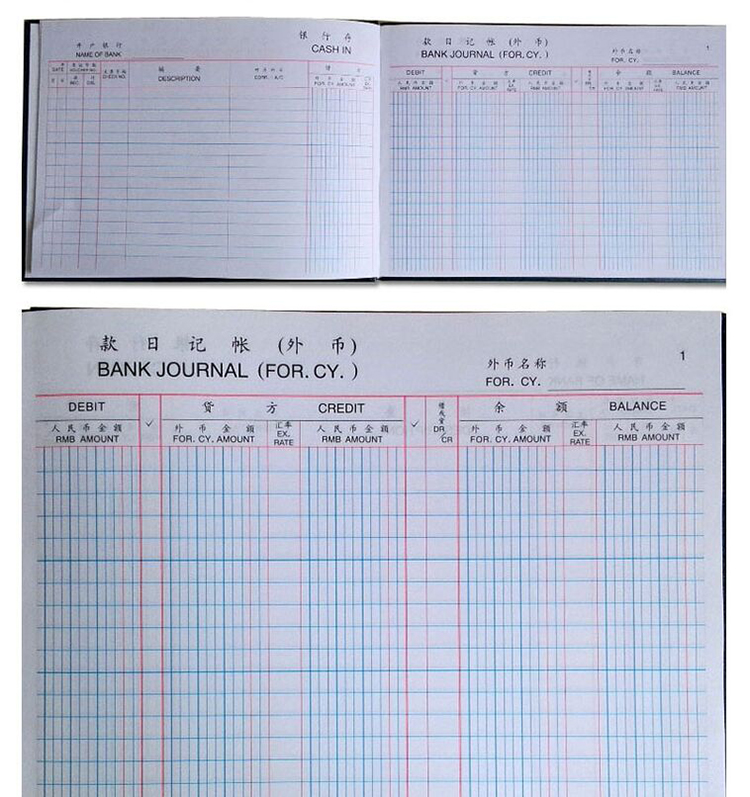 银 行 存
CASH IN
开 户 银 行
NAME OF BANK
DATE
VOUCHER NO.
CHECK NO.
摘 要
DESCRIPTION
借 方
FOR. CY. AMOUNT
款 日 记 帐 (外 币)
BANK JOURNAL (FOR. CY. )
外币名称
FOR. CY.
1
DEBIT 贷 方 CREDIT 余 额 BALANCE
人 民 币 金 额 外 币 金 额 汇率 人 民 币 金 额 外 币 金 额 汇率 人 民 币 金 额
RMB AMOUNT FOR. CY. AMOUNT EX. RATE RMB AMOUNT DR CR FOR. CY. AMOUNT EX. RATE RMB AMOUNT
款 日 记 帐 (外 币)
BANK JOURNAL (FOR. CY. )
外币名称
FOR. CY.
1
DEBIT 贷 方 CREDIT 借或贷 余 额 BALANCE
人 民 币 金 额 外 币 金 额 汇率 人 民 币 金 额 DR 外 币 金 额 汇率 人 民 币 金 额
RMB AMOUNT FOR. CY. AMOUNT EX. RATE RMB AMOUNT CR FOR. CY. AMOUNT EX. RATE RMB AMOUNT